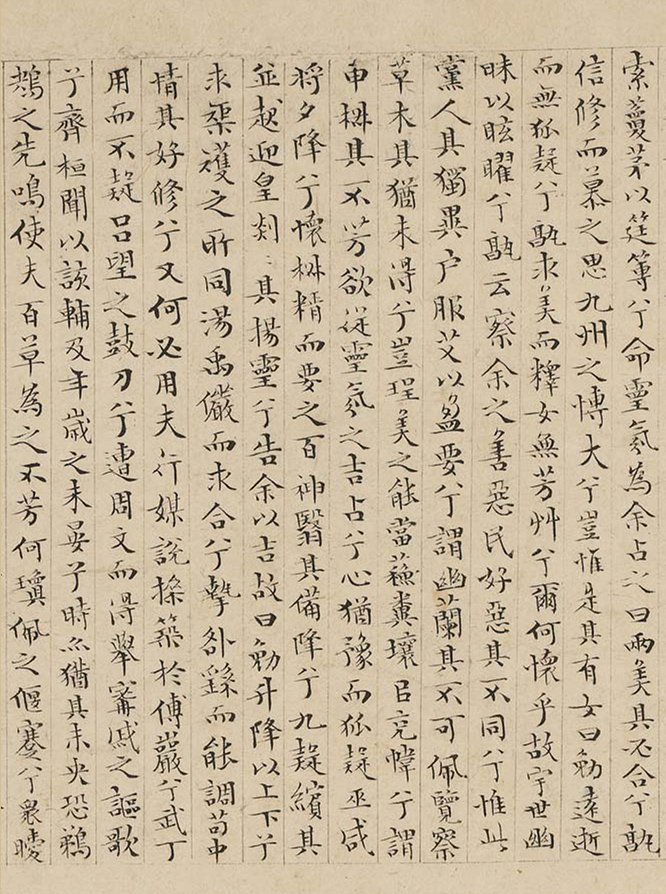 索藑茅以筳篿兮命靈氛為余占之曰兩美其必合兮孰
信修而慕之思九州之博大兮豈惟是其有女曰勉遠逝
而無狐疑兮孰求美而釋女無芳艸兮爾何懷乎故宇世幽
昧以眩曜兮孰云察余之善惡民好惡其不同兮惟此
黨人其獨異户服艾以盈要兮謂幽蘭其不可佩覽察
草木其猶未得兮豈珵美之能當蘓糞壤㠯充幃兮謂
申椒其不芳欲從靈氛之吉占兮心猶豫而狐疑巫咸
將夕降兮懷椒糈而要之百神翳其備降兮九疑繽其
並迎皇剡〻其揚靈兮告余以吉故曰勉升降以上下兮
求榘矱之所同湯禹儼而求合兮摯咎繇而能調苟中
情其好修兮又何必用夫行媒說操築於傅巖兮武丁
用而不疑呂望之鼓刀兮遭周文而得舉甯戚之謳歌
兮齊桓聞以該輔及年歲之未晏兮時亦猶其未央恐鵜
鴂之先鳴使夫百草為之不芳何瓊佩之偃蹇兮衆曖